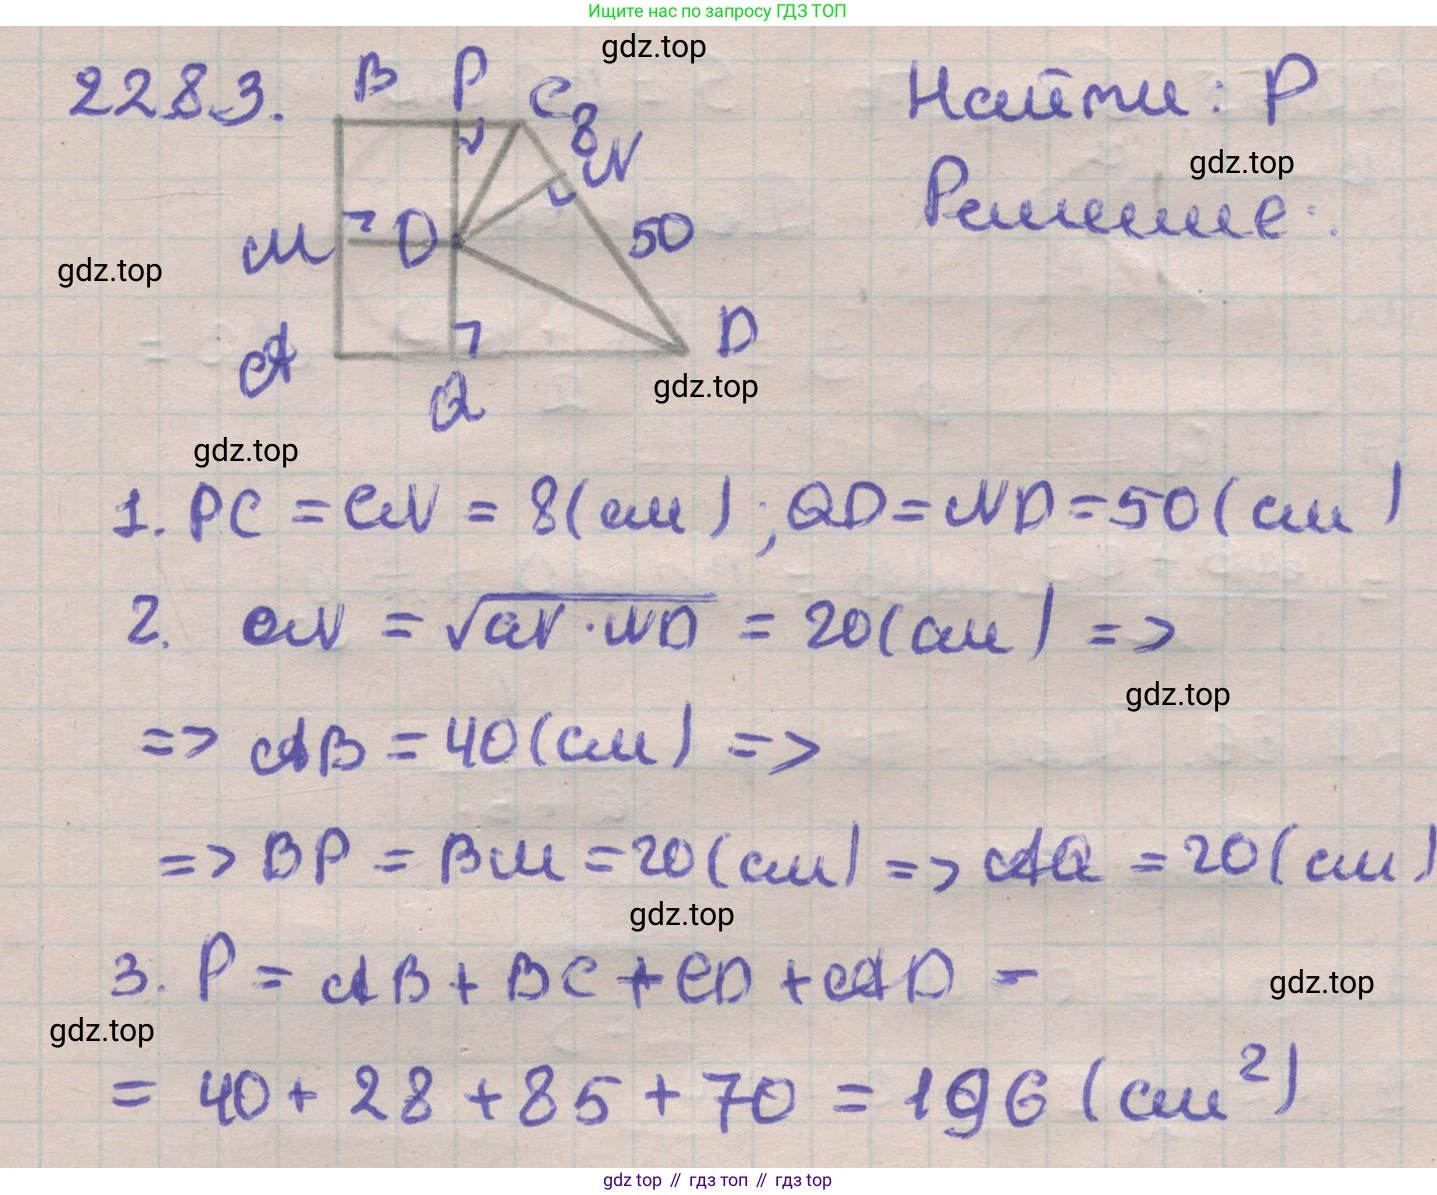 Ищите нас по запросу ГДЗ ТОП
gdz.top
2283.
B P C
8
N
M O
50
A
Q
D
Найти: P
gdz.top
Решение:
gdz.top
gdz.top
gdz.top
1. PC = CN = 8(см); QD = ND = 50(см)
2. ON = √CN · ND = 20(см) =>
gdz.top
=> AB = 40(см) =>
=> BP = BM = 20(см) => AQ = 20(см)
gdz.top
3. P = AB + BC + CD + AD -
gdz.top
gdz.top
= 40 + 28 + 85 + 70 = 196 (см²)
gdz top // гдз топ // гдз top